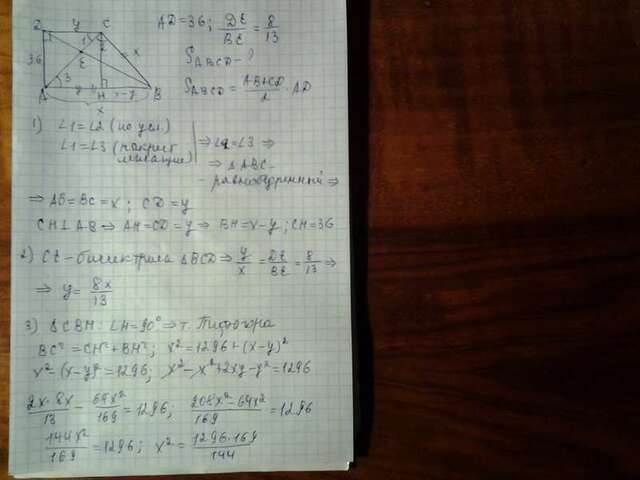 D y C
1 2
x
E
36
3
A y H x-y B
x
AD=36; DE/BE = 8/13
S ABCD - ?
S ABCD = (AB+CD)/2 · AD
1) ∠1=∠2 (по усл)
∠1=∠3 (накрест лежащие)
⇒ ∠2=∠3 ⇒
⇒ △ABC - равнобедренный ⇒
⇒ AB=BC=x; CD=y
CH⊥AB ⇒ AH=CD=y ⇒ BH=x-y; CH=36
2) CE - биссектриса △BCD ⇒ y/x = DE/BE = 8/13 ⇒
⇒ y = 8x/13
3) △CBH: ∠H=90° ⇒ т. Пифагора
BC²=CH²+BH²; x²=1296+(x-y)²
x²-(x-y)²=1296; x²-x²+2xy-y²=1296
2x·8x/13 - 64x²/169 = 1296; (208x²-64x²)/169 = 1296
144x²/169 = 1296; x² = 1296·169/144